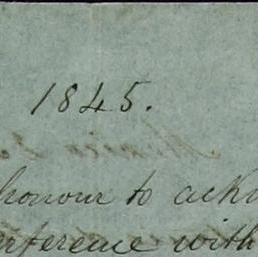 1845.
honour to ackn
erference with